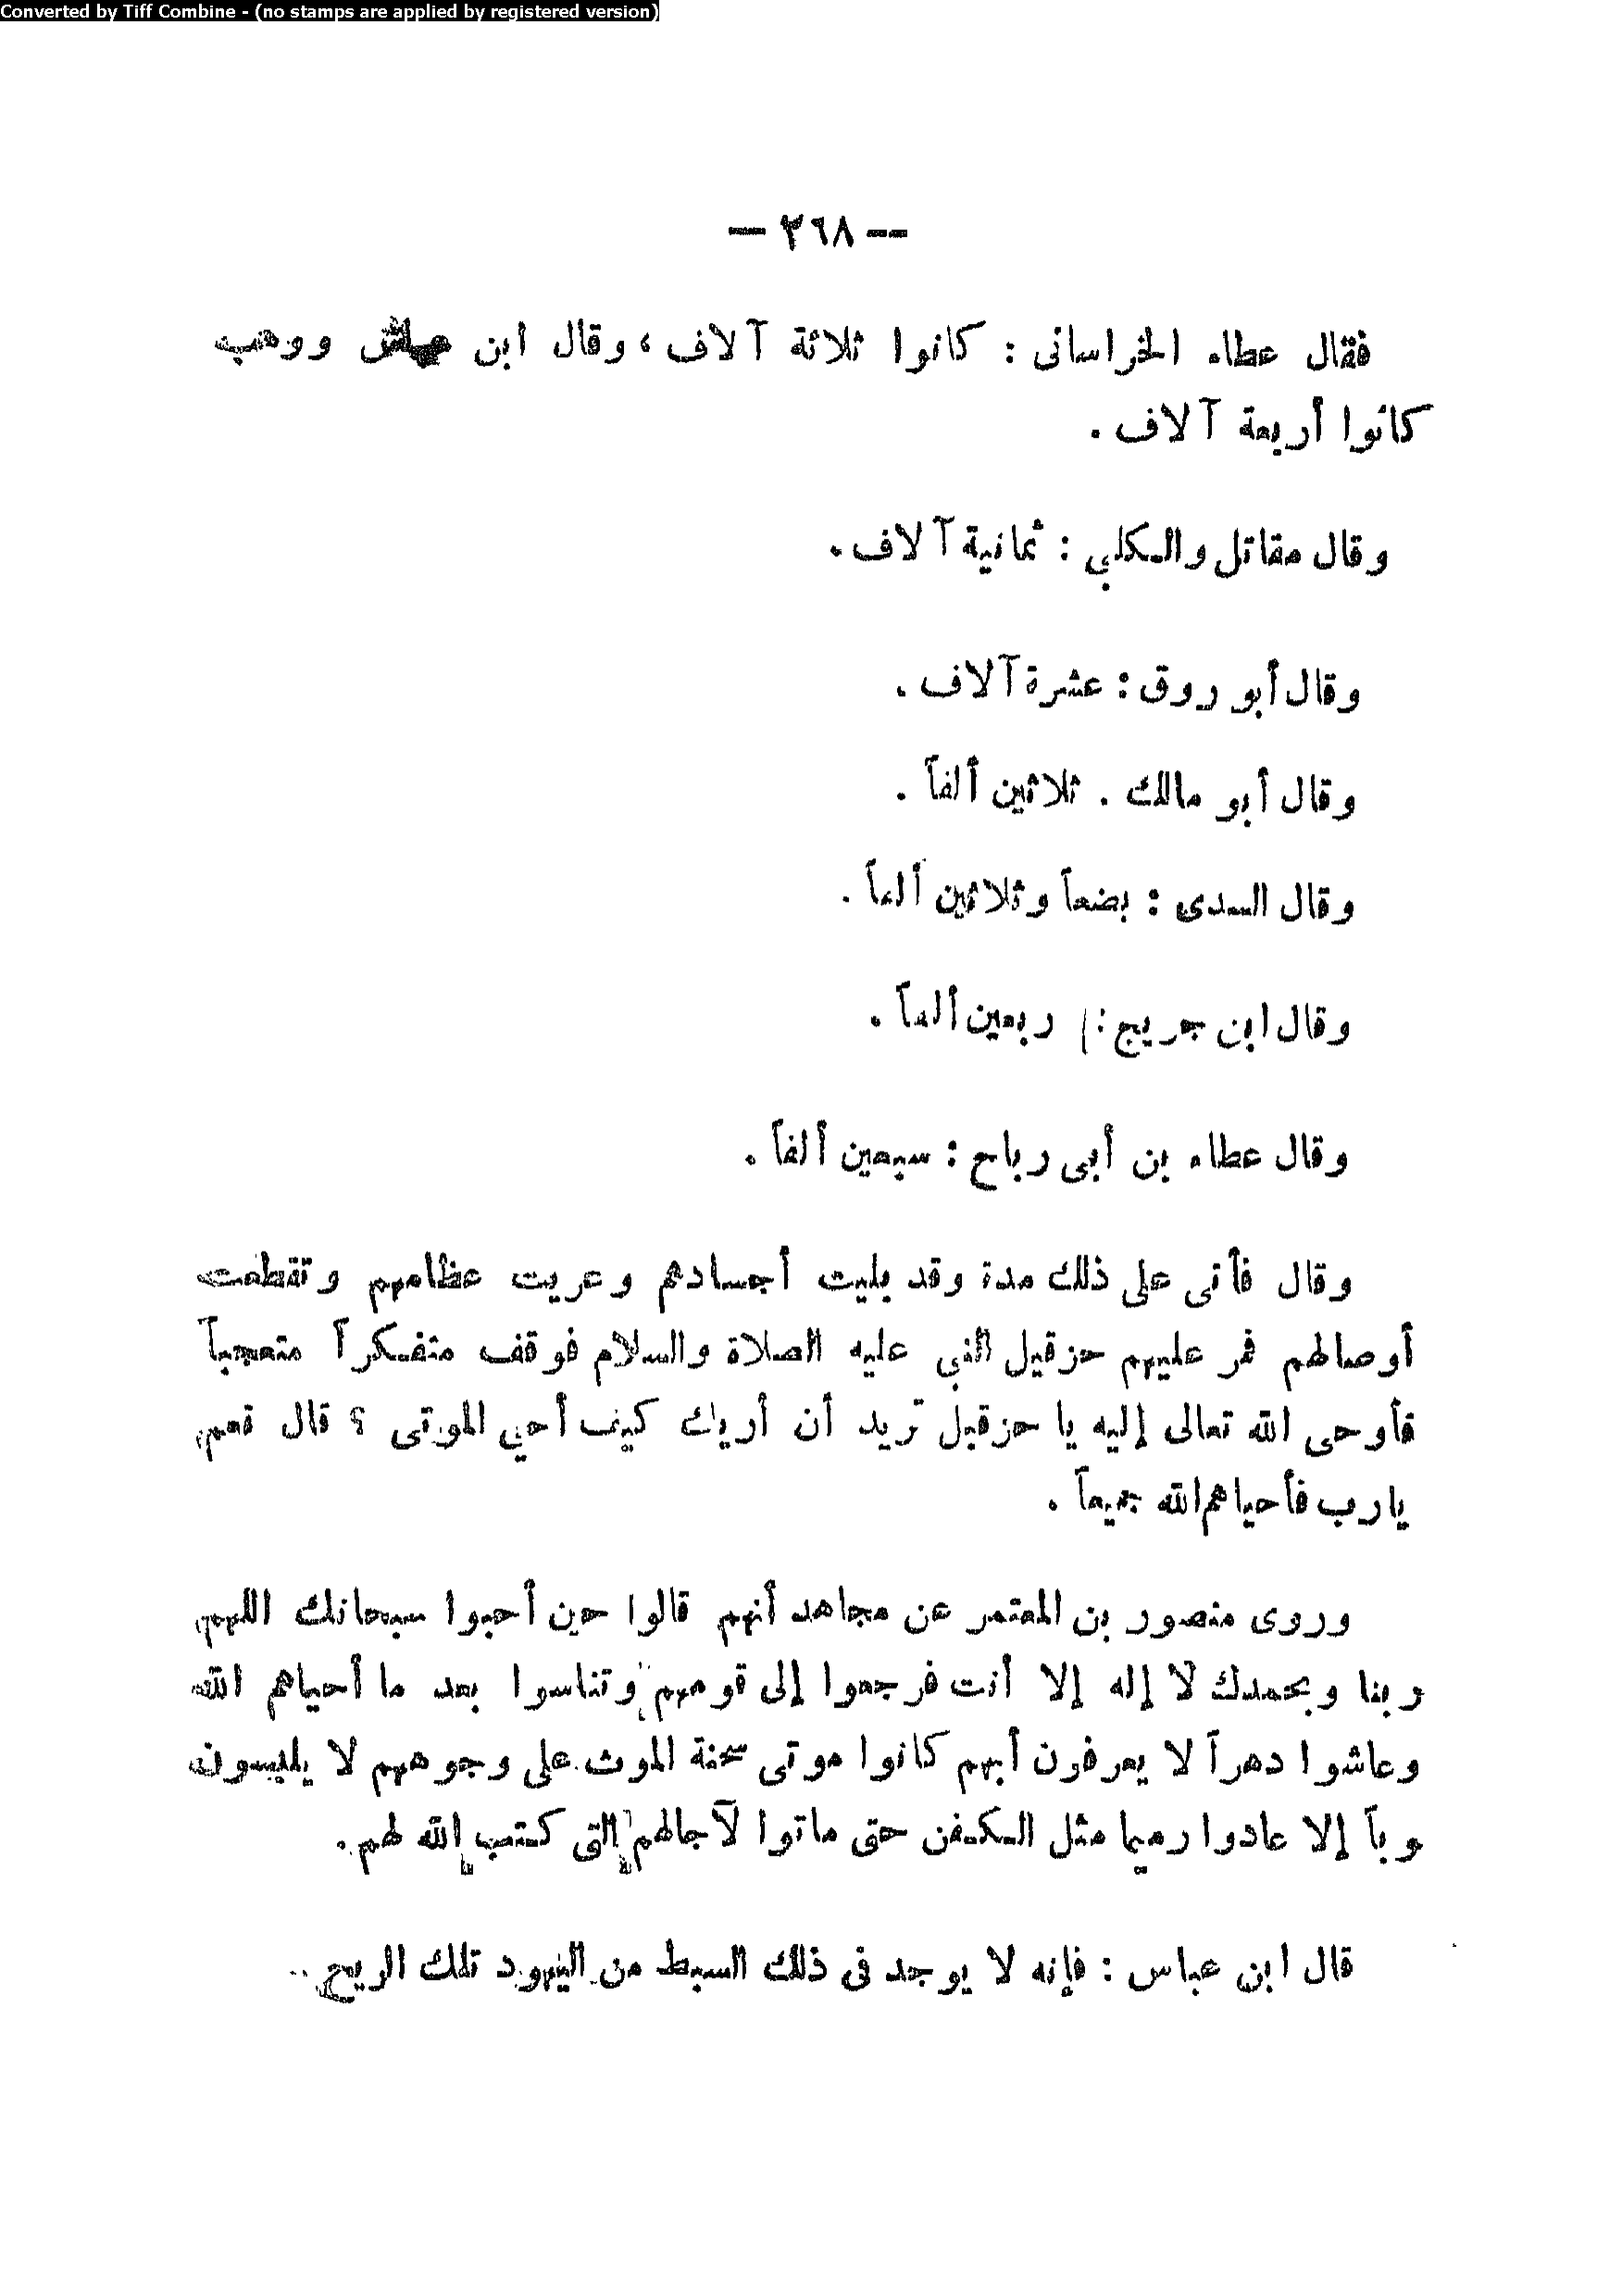 Converted by Tiff Combine - (no stamps are applied by registered version)
— ٢٦٨ —
فقال عطاء الخراسانى : كانوا ثلاثة آلاف ، وقال ابن ووهب
كانوا أربعة آلاف .
وقال مقاتل والكلبي : ثمانية آلاف .
وقال أبو روق : عشرة آلاف .
وقال أبو مالك . ثلاثين ألفاً .
وقال السدى : بضعاً وثلاثين ألفاً .
وقال ابن جريج : أربعين ألفاً .
وقال عطاء بن أبى رباح : سبعين ألفاً .
وقال فأتى على ذلك مدة وقد بليت أجسادهم وعريت عظامهم وتقطعت
أوصالهم فمر عليهم حزقيل النبى عليه الصلاة والسلام فوقف متفكراً متعجباً
فأوحى الله تعالى إليه يا حزقيل تريد أن أريك كيف أحي الموتى ؟ قال نعم
يارب فأحياهم الله جميعاً .
وروى منصور بن المعتمر عن مجاهد أنهم قالوا حين أحيوا سبحانك اللهم
ربنا وبحمدك لا إله إلا أنت فرجعوا إلى قومهم وتناسوا بعد ما أحياهم الله
وعاشوا دهراً لا يعرفون أنهم كانوا موتى سحنة الموت على وجوههم لا يلبسون
وباً إلا عادوا رميما مثل الكفن حتى ماتوا لآجالهم التى كتب الله لهم .
قال ابن عباس : فإنه لا يوجد فى ذلك السبط من اليهود تلك الريح ..